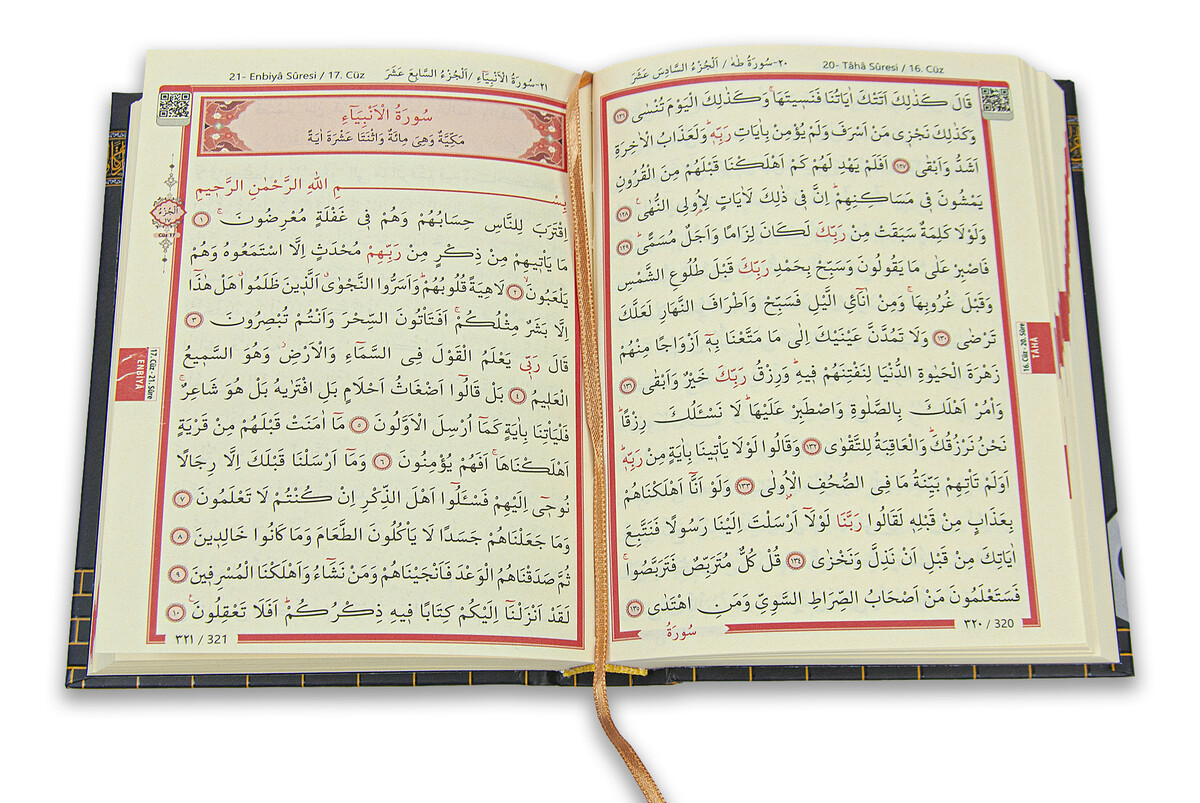 ٢٠-سُورَةُ طٰهٰ / اَلْجُزْءُ السَّادِسَ عَشَرَ
20- Tâhâ Sûresi / 16. Cüz
قَالَ كَذٰلِكَ اَتَتْكَ اٰيَاتُنَا فَنَسٖيتَهَاۚ وَكَذٰلِكَ الْيَوْمَ تُنْسٰى ﴿١٢٦﴾
وَكَذٰلِكَ نَجْزٖى مَنْ اَسْرَفَ وَلَمْ يُؤْمِنْ بِاٰيَاتِ رَبِّهٖؕ وَلَعَذَابُ الْاٰخِرَةِ
اَشَدُّ وَاَبْقٰى ﴿١٢٧﴾ اَفَلَمْ يَهْدِ لَهُمْ كَمْ اَهْلَكْنَا قَبْلَهُمْ مِنَ الْقُرُونِ
يَمْشُونَ فٖى مَسَاكِنِهِمْؕ اِنَّ فٖى ذٰلِكَ لَاٰيَاتٍ لِاُولِى النُّهٰى۟ ﴿١٢٨﴾
وَلَوْلَا كَلِمَةٌ سَبَقَتْ مِنْ رَبِّكَ لَكَانَ لِزَامًا وَاَجَلٌ مُسَمًّىؕ ﴿١٢٩﴾
فَاصْبِرْ عَلٰى مَا يَقُولُونَ وَسَبِّحْ بِحَمْدِ رَبِّكَ قَبْلَ طُلُوعِ الشَّمْسِ
وَقَبْلَ غُرُوبِهَاۚ وَمِنْ اٰنَٓائِ الَّيْلِ فَسَبِّحْ وَاَطْرَافَ النَّهَارِ لَعَلَّكَ
تَرْضٰى ﴿١٣٠﴾ وَلَا تَمُدَّنَّ عَيْنَيْكَ اِلٰى مَا مَتَّعْنَا بِهٖٓ اَزْوَاجًا مِنْهُمْ
زَهْرَةَ الْحَيٰوةِ الدُّنْيَا لِنَفْتِنَهُمْ فٖيهِؕ وَرِزْقُ رَبِّكَ خَيْرٌ وَاَبْقٰى ﴿١٣١﴾
وَأْمُرْ اَهْلَكَ بِالصَّلٰوةِ وَاصْطَبِرْ عَلَيْهَاؕ لَا نَسْـَٔلُكَ رِزْقًاؕ
نَحْنُ نَرْزُقُكَؕ وَالْعَاقِبَةُ لِلتَّقْوٰى ﴿١٣٢﴾ وَقَالُوا لَوْلَا يَأْتٖينَا بِاٰيَةٍ مِنْ رَبِّهٖؕ
اَوَلَمْ تَأْتِهِمْ بَيِّنَةُ مَا فِى الصُّحُفِ الْاُولٰى ﴿١٣٣﴾ وَلَوْ اَنَّٓا اَهْلَكْنَاهُمْ
بِعَذَابٍ مِنْ قَبْلِهٖ لَقَالُوا رَبَّنَا لَوْلَٓا اَرْسَلْتَ اِلَيْنَا رَسُولًا فَنَتَّبِعَ
اٰيَاتِكَ مِنْ قَبْلِ اَنْ نَذِلَّ وَنَخْزٰى ﴿١٣٤﴾ قُلْ كُلٌّ مُتَرَبِّصٌ فَتَرَبَّصُواۚ
فَسَتَعْلَمُونَ مَنْ اَصْحَابُ الصِّرَاطِ السَّوِىِّ وَمَنِ اهْتَدٰى ﴿١٣٥﴾
سُورَةُ
٣٢٠ / 320
16. Cüz - 20. Sûre
TÂHÂ
21- Enbiyâ Sûresi / 17. Cüz
٢١-سُورَةُ الْاَنْبِيَٓاءِ / اَلْجُزْءُ السَّابِعَ عَشَرَ
سُورَةُ الْاَنْبِيَٓاءِ
مَكِّيَّةٌ وَهِىَ مِائَةٌ وَاثْنَتَا عَشْرَةَ اٰيَةً
بِسْمِ اللّٰهِ الرَّحْمٰنِ الرَّحٖيمِ
اِقْتَرَبَ لِلنَّاسِ حِسَابُهُمْ وَهُمْ فٖى غَفْلَةٍ مُعْرِضُونَۚ ﴿١﴾
مَا يَأْتٖيهِمْ مِنْ ذِكْرٍ مِنْ رَبِّهِمْ مُحْدَثٍ اِلَّا اسْتَمَعُوهُ وَهُمْ
يَلْعَبُونَۙ ﴿٢﴾ لَاهِيَةً قُلُوبُهُمْؕ وَاَسَرُّوا النَّجْوٰىۗ اَلَّذٖينَ ظَلَمُواۗ هَلْ هٰذَٓا
اِلَّا بَشَرٌ مِثْلُكُمْۚ اَفَتَأْتُونَ السِّحْرَ وَاَنْتُمْ تُبْصِرُونَ ﴿٣﴾
قَالَ رَبّٖى يَعْلَمُ الْقَوْلَ فِى السَّمَٓاءِ وَالْاَرْضِؗ وَهُوَ السَّمٖيعُ
الْعَلٖيمُ ﴿٤﴾ بَلْ قَالُٓوا اَضْغَاثُ اَحْلَامٍ بَلِ افْتَرٰيهُ بَلْ هُوَ شَاعِرٌۚ
فَلْيَأْتِنَا بِاٰيَةٍ كَمَٓا اُرْسِلَ الْاَوَّلُونَ ﴿٥﴾ مَٓا اٰمَنَتْ قَبْلَهُمْ مِنْ قَرْيَةٍ
اَهْلَكْنَاهَاۚ اَفَهُمْ يُؤْمِنُونَ ﴿٦﴾ وَمَٓا اَرْسَلْنَا قَبْلَكَ اِلَّا رِجَالًا
نُوحٖٓى اِلَيْهِمْ فَسْـَٔلُٓوا اَهْلَ الذِّكْرِ اِنْ كُنْتُمْ لَا تَعْلَمُونَ ﴿٧﴾
وَمَا جَعَلْنَاهُمْ جَسَدًا لَا يَأْكُلُونَ الطَّعَامَ وَمَا كَانُوا خَالِدٖينَ ﴿٨﴾
ثُمَّ صَدَقْنَاهُمُ الْوَعْدَ فَاَنْجَيْنَاهُمْ وَمَنْ نَشَٓاءُ وَاَهْلَكْنَا الْمُسْرِفٖينَ ﴿٩﴾
لَقَدْ اَنْزَلْنَٓا اِلَيْكُمْ كِتَابًا فٖيهِ ذِكْرُكُمْؕ اَفَلَا تَعْقِلُونَ۟ ﴿١٠﴾
٣٢١ / 321
اَلْجُزْءُ
١٧
Cüz 17
17. Cüz - 21. Sûre
ENBİYÂ